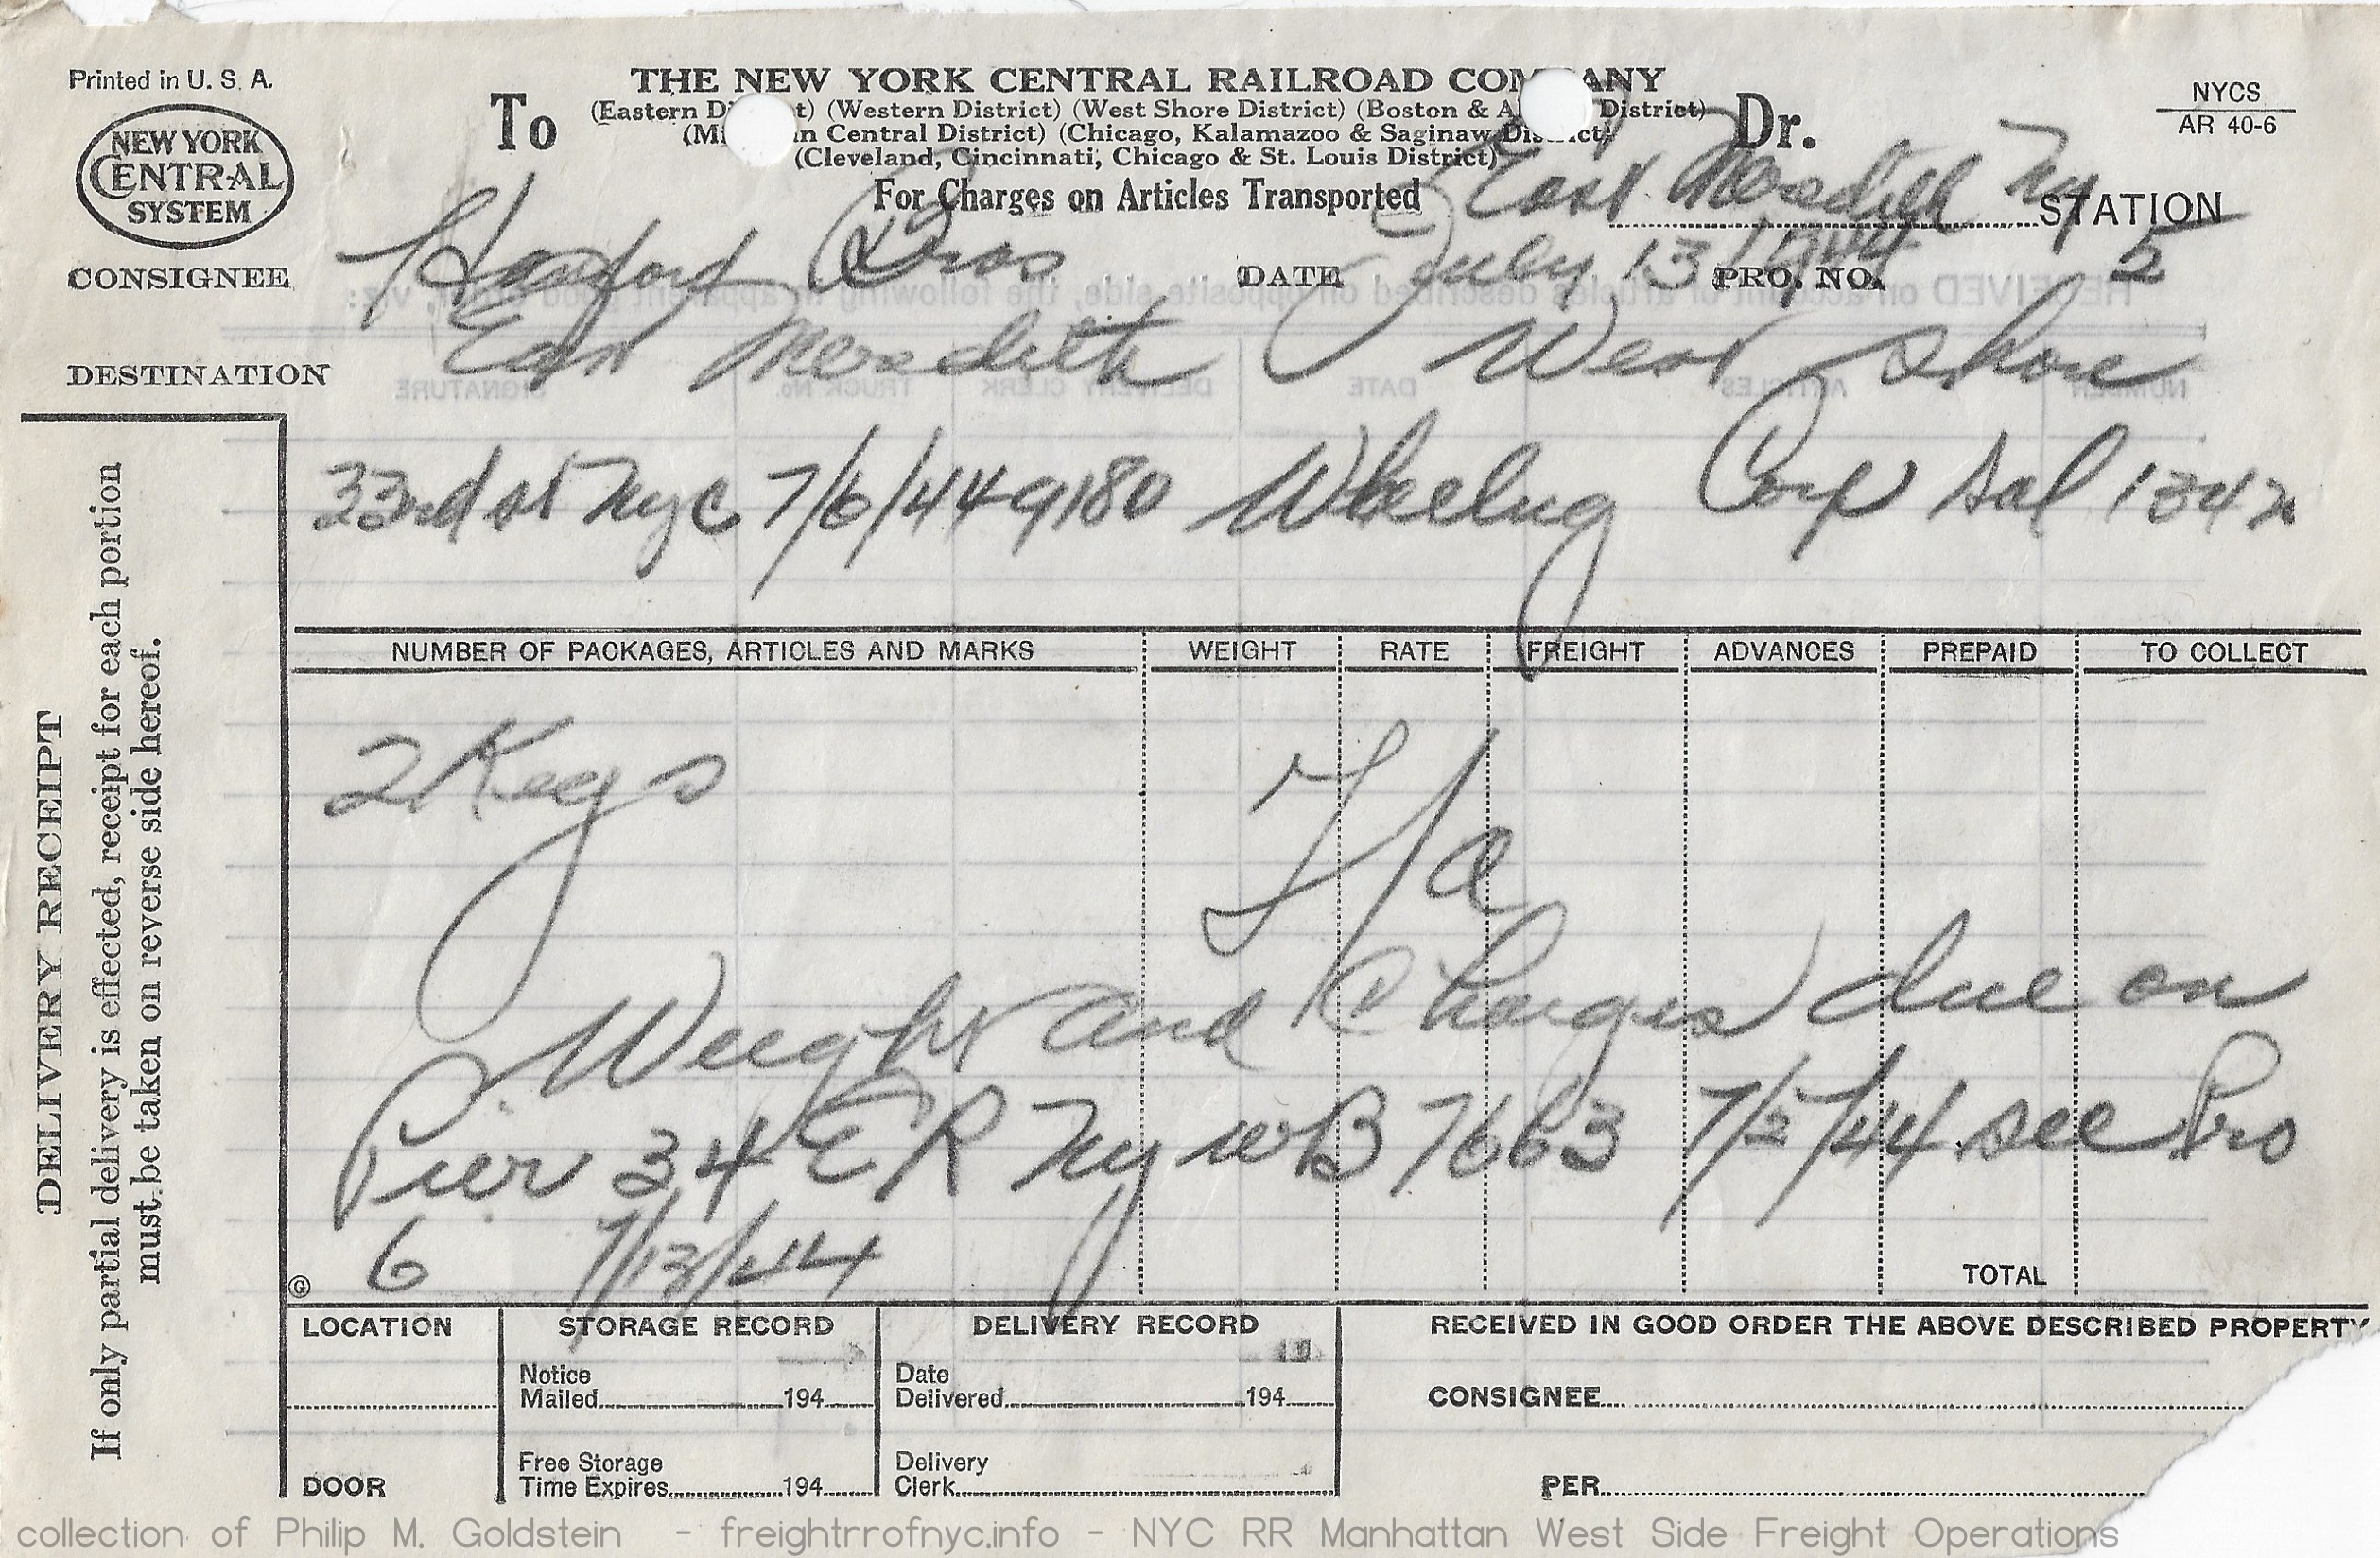 Printed in U. S. A.
NEW YORK
CENTRAL
SYSTEM
To
THE NEW YORK CENTRAL RAILROAD COM ANY
(Eastern Di t) (Western District) (West Shore District) (Boston & A District)
(Mi n Central District) (Chicago, Kalamazoo & Saginaw District)
(Cleveland, Cincinnati, Chicago & St. Louis District)
For Charges on Articles Transported
Dr.
NYCS
AR 40-6
East Meredith Ny STATION
CONSIGNEE Bros DATE July 13 1944 PRO. NO. 5
DESTINATION East Meredith West Shore
33rd st Nyc 7/6/44 49180 Wheelng Corp Sal 1342
DELIVERY RECEIPT
If only partial delivery is effected, receipt for each portion
must be taken on reverse side hereof.
NUMBER OF PACKAGES, ARTICLES AND MARKS WEIGHT RATE FREIGHT ADVANCES PREPAID TO COLLECT
2 Kegs
F/a
Weight and Charges due on
Pier 34 ER Ny WB 7663 7/5/44 see Pro
6 7/13/44
TOTAL
G
LOCATION STORAGE RECORD DELIVERY RECORD RECEIVED IN GOOD ORDER THE ABOVE DESCRIBED PROPERTY
Notice
Mailed 194
Date
Delivered 194
CONSIGNEE
DOOR
Free Storage
Time Expires 194
Delivery
Clerk
PER
collection of Philip M. Goldstein - freightrrofnyc.info - NYC RR Manhattan West Side Freight Operations